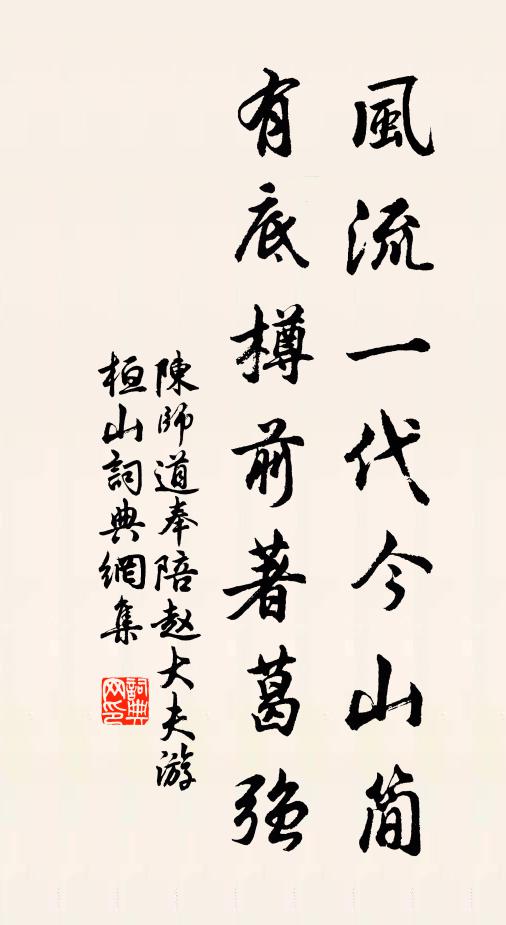 風流一代今山簡
有底樽前著葛強
陳師道奉陪赵大夫游
桓山詞典網集
詞典
网印